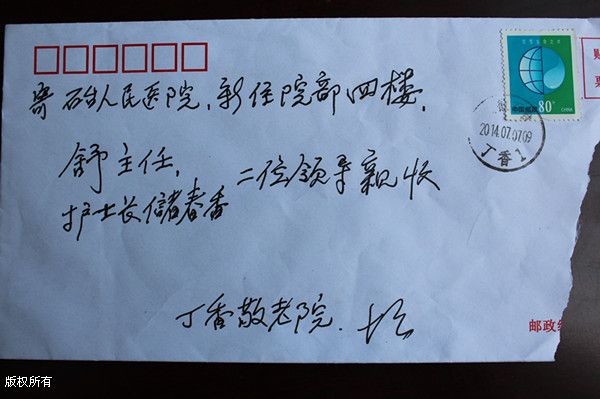 寄 石台人民医院,新住院部四楼,
舒主任,
护士长储春香
二位领导亲收
丁香敬老院.
80分
中国邮政
CHINA
2014.07.07.09
丁香1
贴
票
邮政编
版权所有